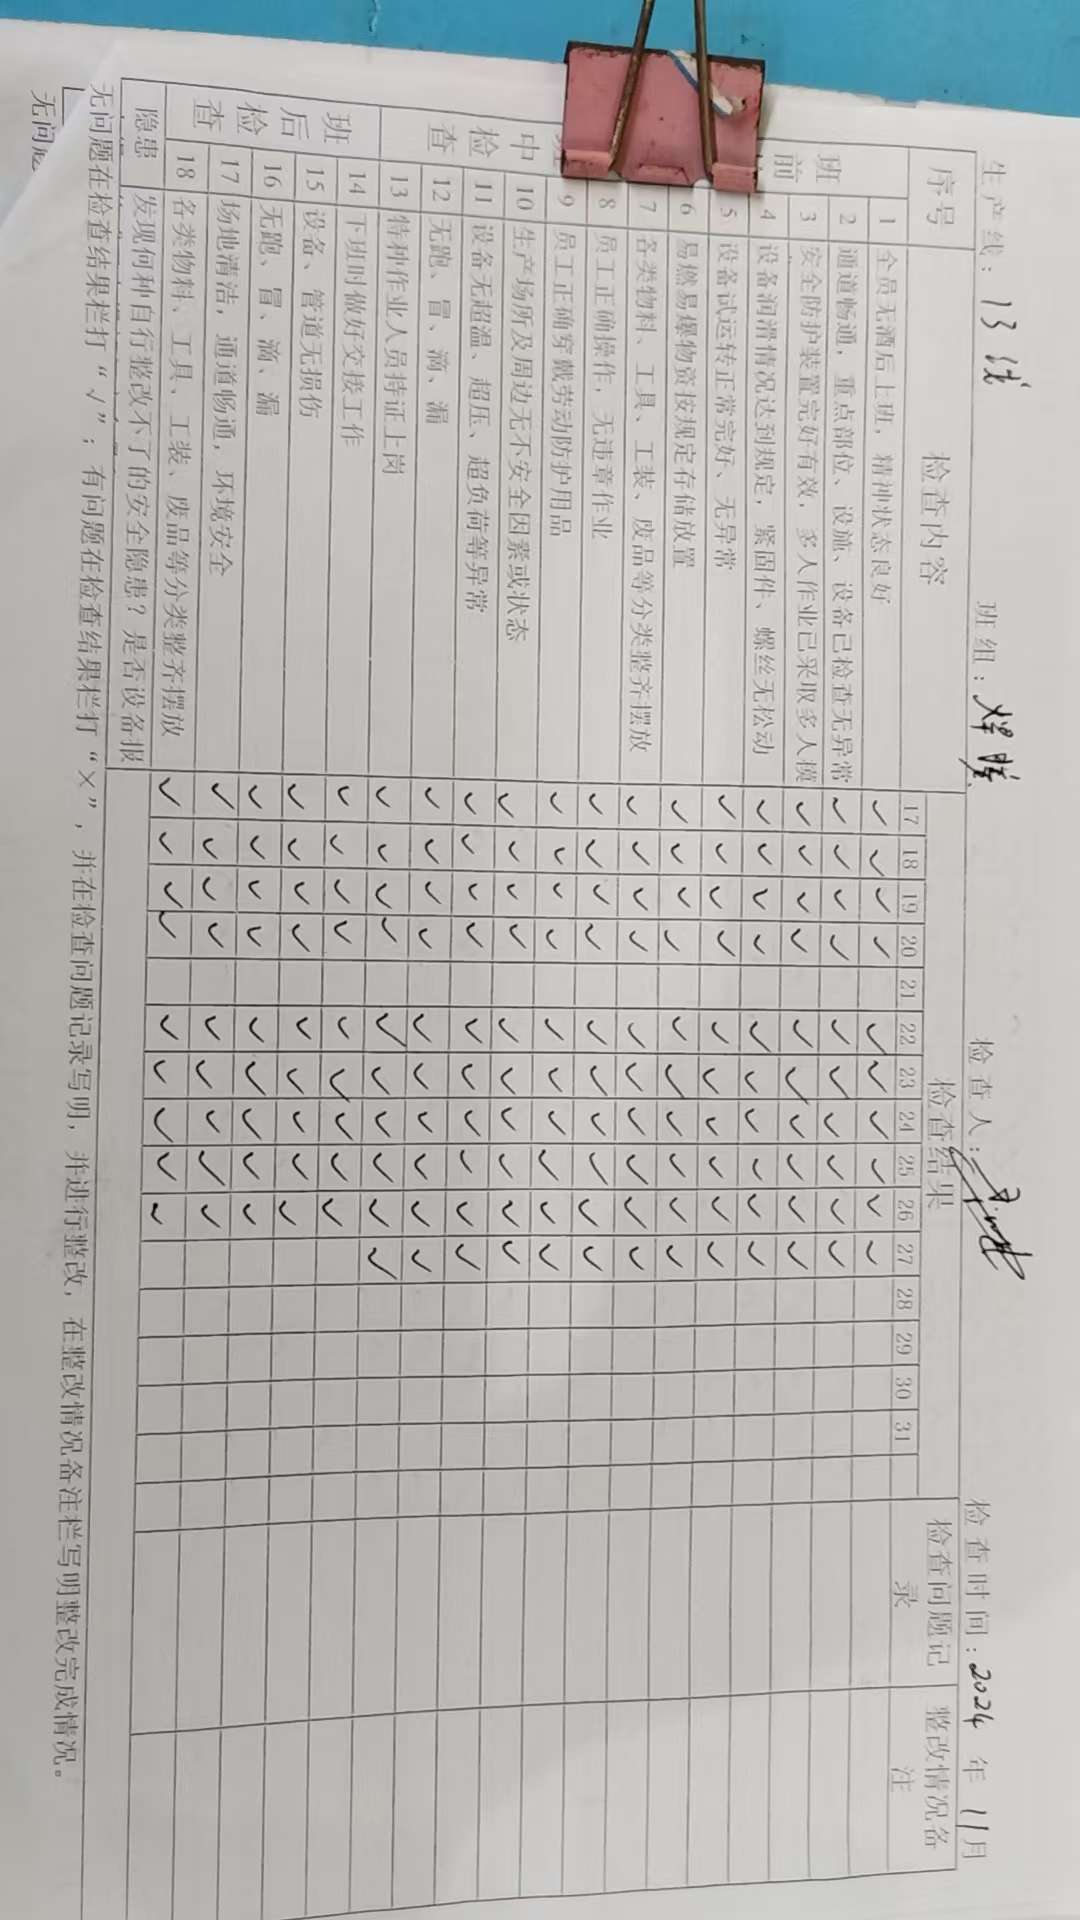 生产线：13线 班组： 检查人： 检查时间：2024年11月
序号 检查内容 检查结果 检查问题记录 整改情况备注
17 18 19 20 21 22 23 24 25 26 27 28 29 30 31
班前
1 全员无酒后上班，精神状态良好 ✓ ✓ ✓ ✓ ✓ ✓ ✓ ✓ ✓ ✓
2 通道畅通，重点部位、设施、设备已检查无异常 ✓ ✓ ✓ ✓ ✓ ✓ ✓ ✓ ✓ ✓
3 安全防护装置完好有效，多人作业已采取多人模 ✓ ✓ ✓ ✓ ✓ ✓ ✓ ✓ ✓ ✓
4 设备润滑情况达到规定，紧固件、螺丝无松动 ✓ ✓ ✓ ✓ ✓ ✓ ✓ ✓ ✓ ✓
5 设备试运转正常完好、无异常 ✓ ✓ ✓ ✓ ✓ ✓ ✓ ✓ ✓ ✓
6 易燃易爆物资按规定存储放置 ✓ ✓ ✓ ✓ ✓ ✓ ✓ ✓ ✓ ✓
7 各类物料、工具、工装、废品等分类整齐摆放 ✓ ✓ ✓ ✓ ✓ ✓ ✓ ✓ ✓ ✓
中检查
8 员工正确操作，无违章作业 ✓ ✓ ✓ ✓ ✓ ✓ ✓ ✓ ✓ ✓
9 员工正确穿戴劳动防护用品 ✓ ✓ ✓ ✓ ✓ ✓ ✓ ✓ ✓ ✓
10 生产场所及周边无不安全因素或状态 ✓ ✓ ✓ ✓ ✓ ✓ ✓ ✓ ✓ ✓
11 设备无超温、超压、超负荷等异常 ✓ ✓ ✓ ✓ ✓ ✓ ✓ ✓ ✓ ✓
12 无跑、冒、滴、漏 ✓ ✓ ✓ ✓ ✓ ✓ ✓ ✓ ✓ ✓
13 特种作业人员持证上岗 ✓ ✓ ✓ ✓ ✓ ✓ ✓ ✓ ✓ ✓
班后检查
14 下班时做好交接工作 ✓ ✓ ✓ ✓ ✓ ✓ ✓ ✓ ✓
15 设备、管道无损伤 ✓ ✓ ✓ ✓ ✓ ✓ ✓ ✓ ✓
16 无跑、冒、滴、漏 ✓ ✓ ✓ ✓ ✓ ✓ ✓ ✓ ✓
17 场地清洁，通道畅通，环境安全 ✓ ✓ ✓ ✓ ✓ ✓ ✓ ✓ ✓
18 各类物料、工具、工装、废品等分类整齐摆放 ✓ ✓ ✓ ✓ ✓ ✓ ✓ ✓ ✓
隐患 发现何种自行整改不了的安全隐患？是否设备报
无问题在检查结果栏打“√”；有问题在检查结果栏打“×”，并在检查问题记录写明，并进行整改，在整改情况备注栏写明整改完成情况。
无问题